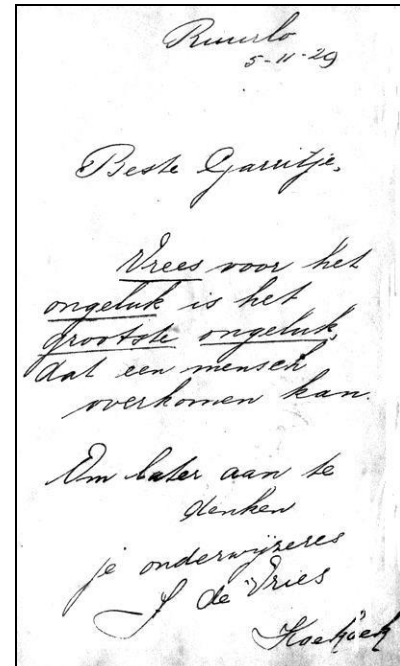 Ruurlo
5-11-29
Beste Garritje,
Vrees voor het
ongeluk is het
grootste ongeluk,
dat een mensch
overkomen kan.
Om later aan te
denken
je onderwijzeres
J de Vries
Koekoek